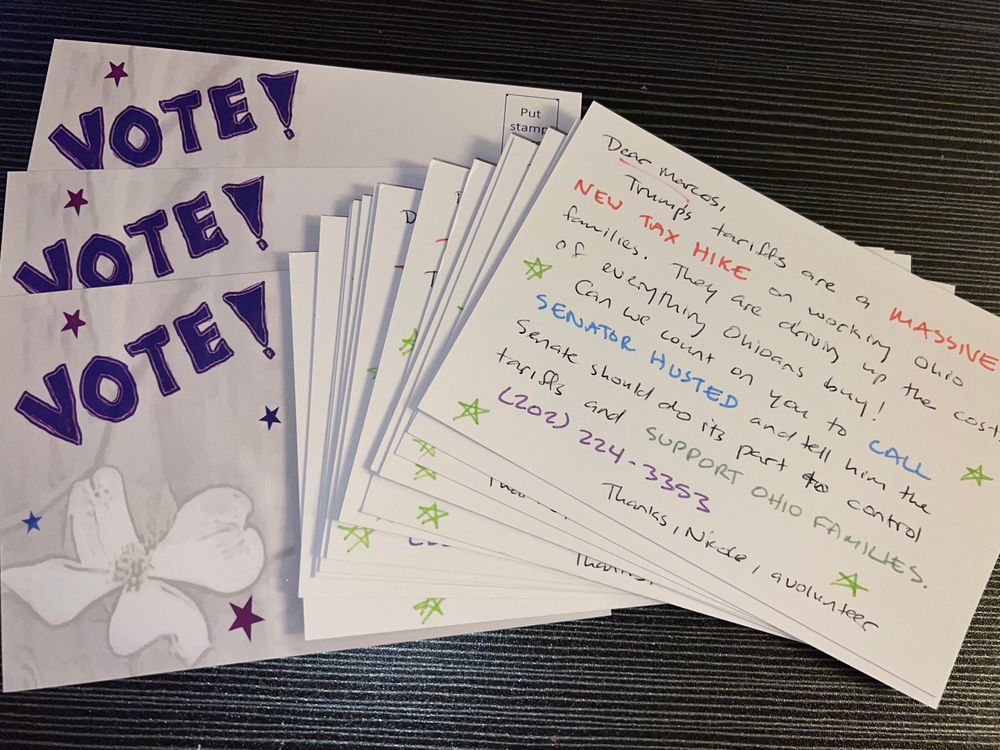 VOTE!
Put
stamp
VOTE!
VOTE!
Dear Marcos,
Trumps tariffs are a MASSIVE
NEW TAX HIKE on working Ohio
families. They are driving up the cost
of everything Ohioans buy!
Can we count on you to CALL
SENATOR HUSTED and tell him the
Senate should do its part to control
tariffs and SUPPORT OHIO FAMILIES.
(202) 224-3353
Thanks, Nicole, a volunteer